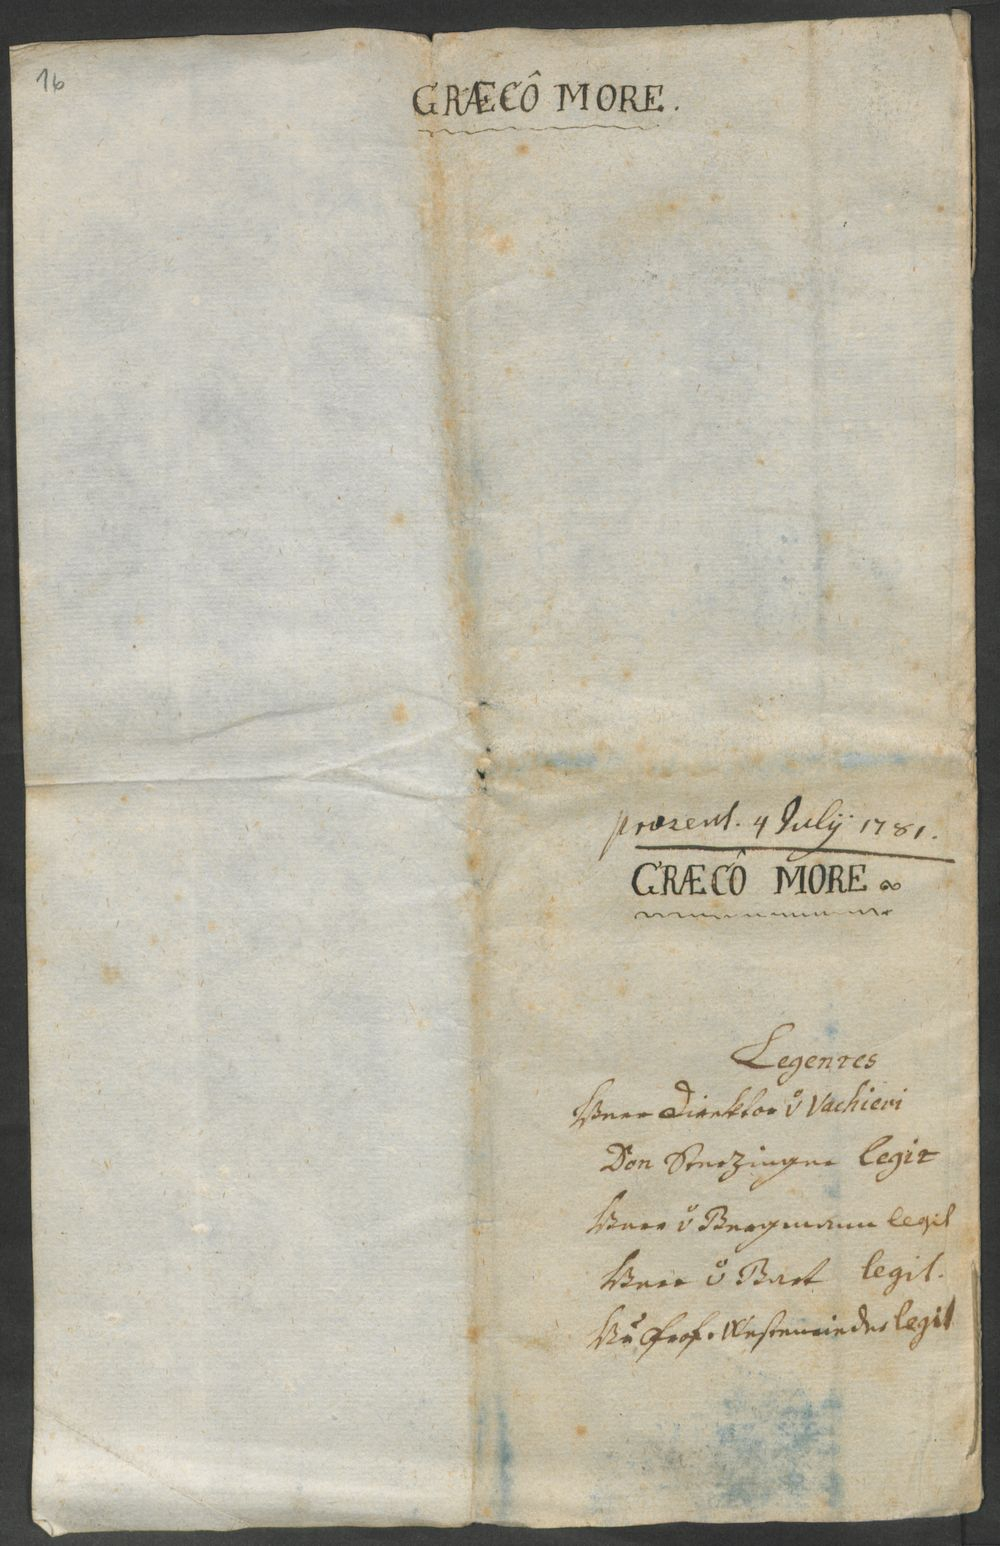 16
GRÆCÔ MORE.
præsent. 4 Julÿ 1781.
GRÆCÔ MORE
Legentes
Herr Direktor v Vachieri
Don Sterzinger legit
Herr v Bergmann legit
Herr v Bart legit.
Hr Prof. Westenrieder legit